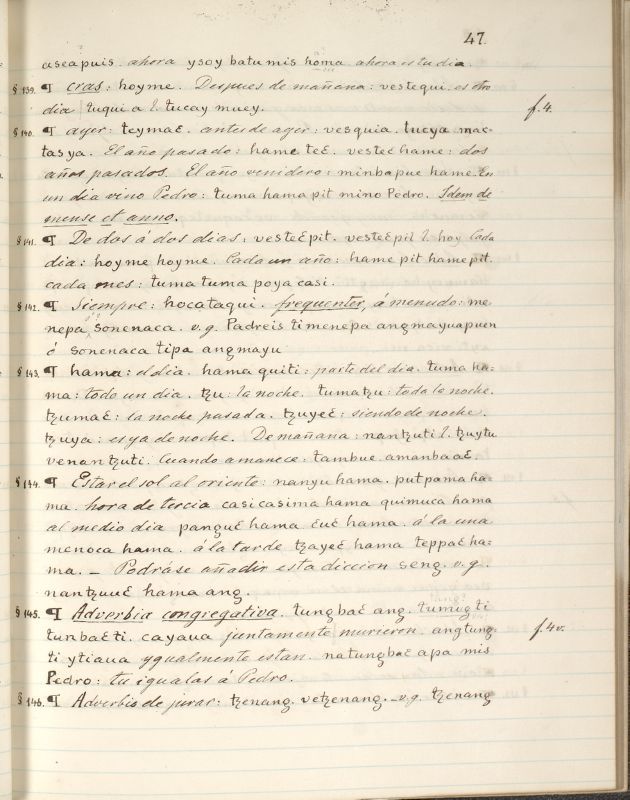 47.
aseapuis. ahora ysoy batumis homa. ahora es tu dia.
§ 139. ¶ cras: hoyme. Despues de mañana: vestequi. es otro
dia | tuqui a l. tucay muey. f. 4.
§ 140. ¶ ayer: teymaƐ. antes de ayer: vesquia. tucya mac-
tasya. El año pasado: hame teƐ. vesteƐ hame: dos
años pasados. El año venidero: minbapue hame. En
un dia vino Pedro: tuma hama pit mino Pedro. Idem de
mense et anno.
§ 141. ¶ De dos á dos dias: vesteƐpit. vesteƐpil l. hoy Cada
dia: hoyme hoyme. Cada un año: hame pit hame pit.
cada mes: tuma tuma poya casi.
§ 142. ¶ Siempre: hocataqui. frequenter, á menudo: me-
nepa, sonenaca. v.g. Padreis timenepa angmayuapuen
ó sonenaca tipa angmayu
§ 143. ¶ hama: el dia. hama quiti: parte del dia. tuma ha-
ma: todo un dia. tzu: la noche. tumatzu: toda la noche.
tzumaƐ: la noche pasada. tzuyeƐ: siendo de noche.
tzuya: es ya de noche. De mañana: nantzuti l. tzuytu
venantzuti. Cuando amanece: tambue amanbaaƐ.
§ 144. ¶ Estar el sol al oriente: nanyu hama. putpama ha-
ma. hora de tercia casicasima hama quimuca hama
al medio dia panguƐ hama ƐuƐ hama. á la una
menoca hama. á la tarde tzayeƐ hama teppaƐ ha-
ma. – Podráse añadir esta diccion seng. v.g.
nantzuuƐ hama ang.
§ 145. ¶ Adverbia congregativa. tungbaƐ ang. tumug ti
tunbaƐti. cayaua juntamente murieron. angtung- f. 4v.
ti ytiaua ygualmente estan. natungbaƐ apa mis
Pedro: tu igualas á Pedro.
§ 146. ¶ Adverbio de jurar: tzenang. vetzenang. – v.g. tzenang